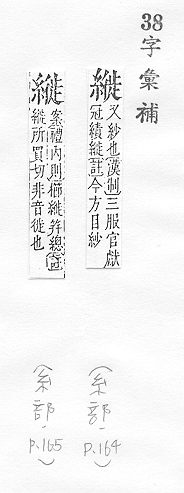 38字彙補
縰
又紗也〔漢制〕三服官獻
冠績縰〔註〕今方目紗
(糸部, P.164)
縰
案禮內則櫛縰笄總
縰所買切非音徙也
(糸部, P.165)